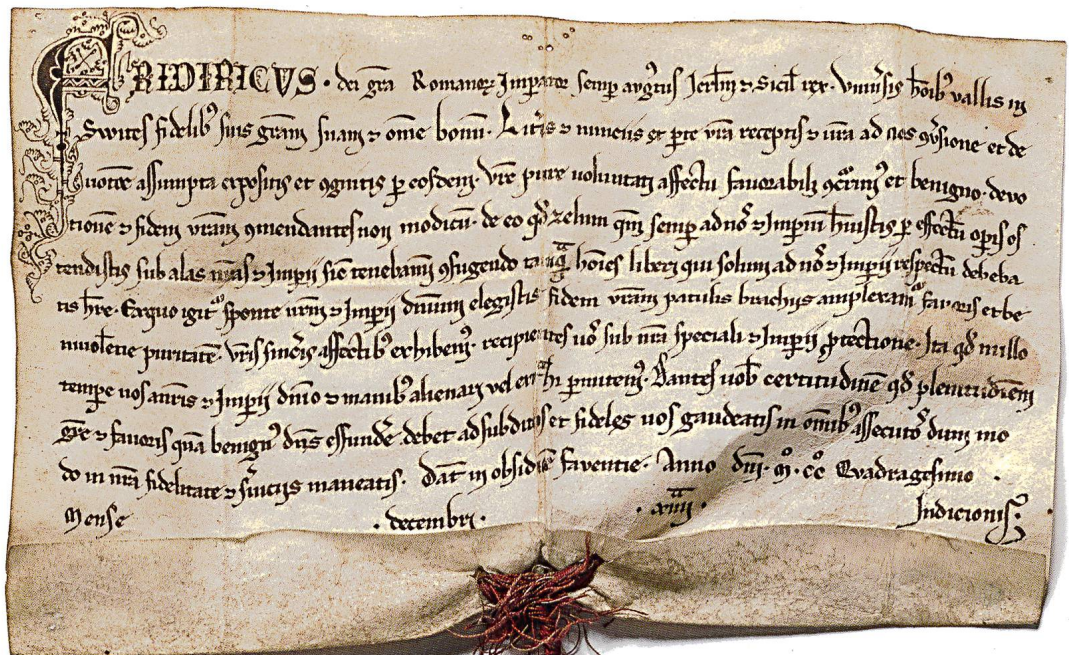 FRIDIRICVS · dei gr̄a Romanoꝝ Imꝑator semꝑ aug᷒tus Jerl̄m ⁊ Sicil̄ rex · Vniu᷒sis ho̅ib᷒ vallis in
Swites fidelib᷒ suis gr̄am suam ⁊ om̄e bonū · Litt᷒is ⁊ nunciis ex ꝑte vr̄a receptis ⁊ vr̄a ad nos ꝯu᷒sione et de
uotōe assumpta expositis et ꝯgnitis ꝑ eosdem · vr̄e pure voluntati affectu fauorabili ꝯcurrim᷒ et benigno · deuo
tionē ⁊ fidem vr̄am ꝯmendantes non modicū · de eo qd̄ zelum quē semꝑ ad nos ⁊ Imꝑiū ha̅uistis ꝑ effectū oꝑis os
tendistis sub alas nr̄as ⁊ Imꝑii sic̄ tenebamī ꝯfugendo tamqᵃ̄ ho̅ies liberi qui solum ad nos ⁊ Imꝑii respectū debeba
tis h̄re · Ex quo igit᷒ sponte nr̄m ⁊ Imꝑii dn̄ium elegistis fidem vr̄am patulis brachiis amplexam᷒ fauoris et be
niuolētie puritatē · vr̄is sinc᷒is affectib᷒ exhibem᷒ · recipientes uos sub nr̄a speciali ⁊ Imꝑii ꝓtectione · Ita qd̄ nullo
temꝑe uos a nr̄is ⁊ Imꝑii dn̄io ⁊ manib᷒ alienari vel extᵃhi ꝑmittem᷒ · Dantes uob̄ certitudinē qd̄ plenitudinem
gr̄e ⁊ fauoris quā benign᷒ dn̄s effundē debet ad subditos et fideles uos gaudeatis in om̄ib᷒ assecutos dum mo
do in nr̄a fidelitate ⁊ s᷒uiciis maneatis · Dat̄ in obsidiōe fauentie · Anno dn̄i · m̊ · cc̊ Quadragesimo ·
Mense · decembri · · xiiii · Indicionis ·